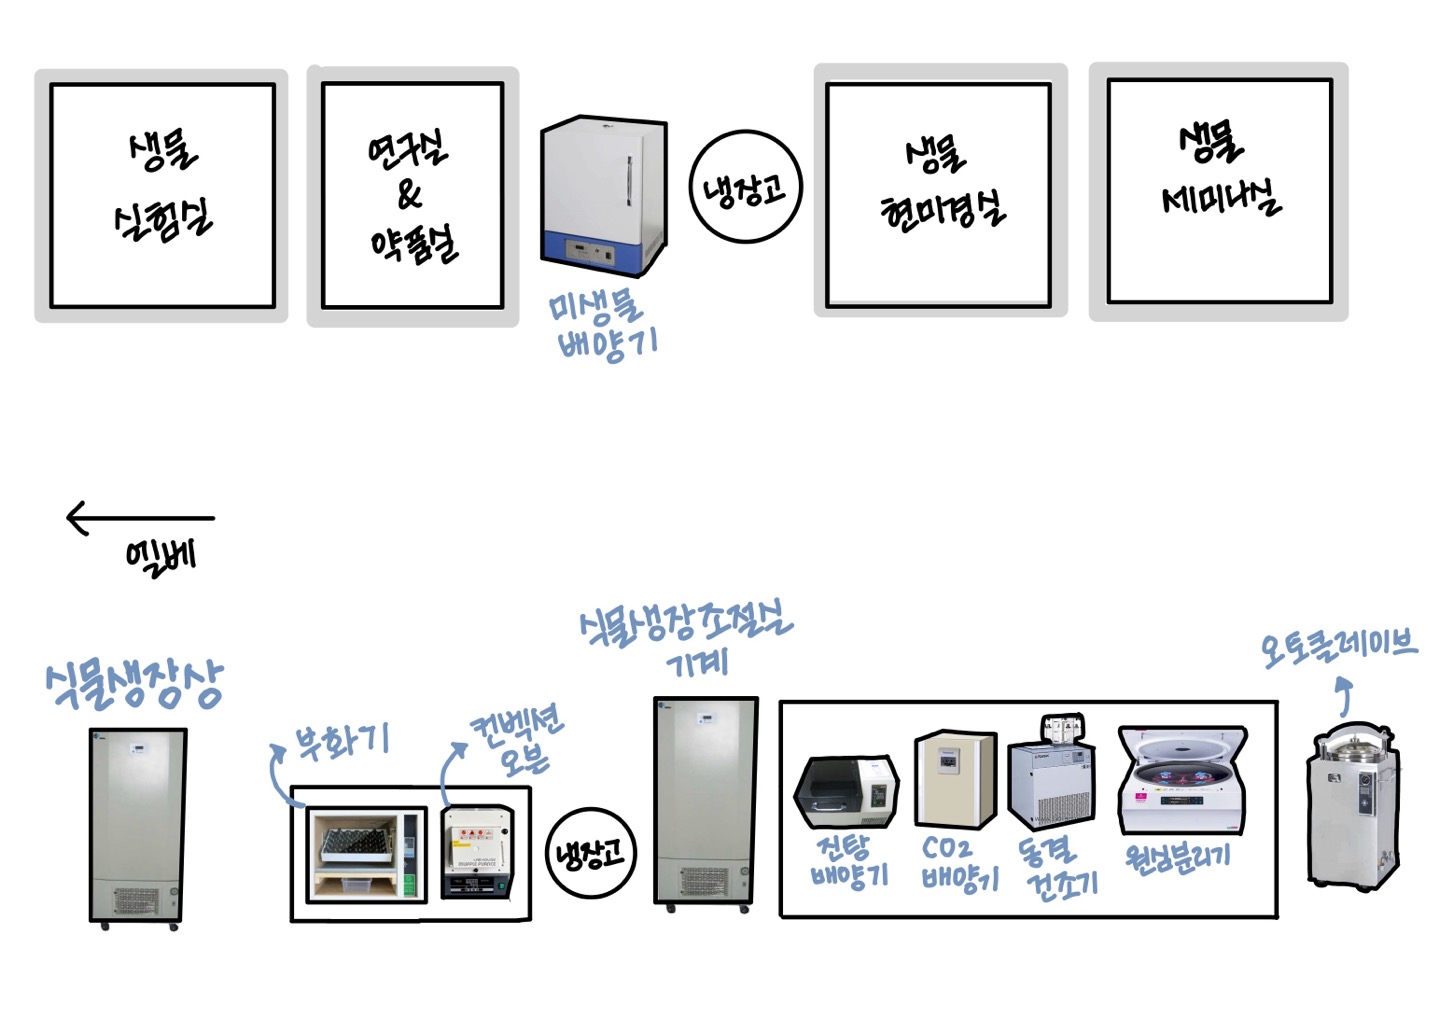 생물
실험실
연구실
&
약품실
미생물
배양기
냉장고
생물
현미경실
생물
세미나실
엘베
식물생장상
부화기
컨벡션
오븐
냉장고
식물생장조절실
기계
진탕
배양기
CO2
배양기
동결
건조기
원심분리기
오토클레이브